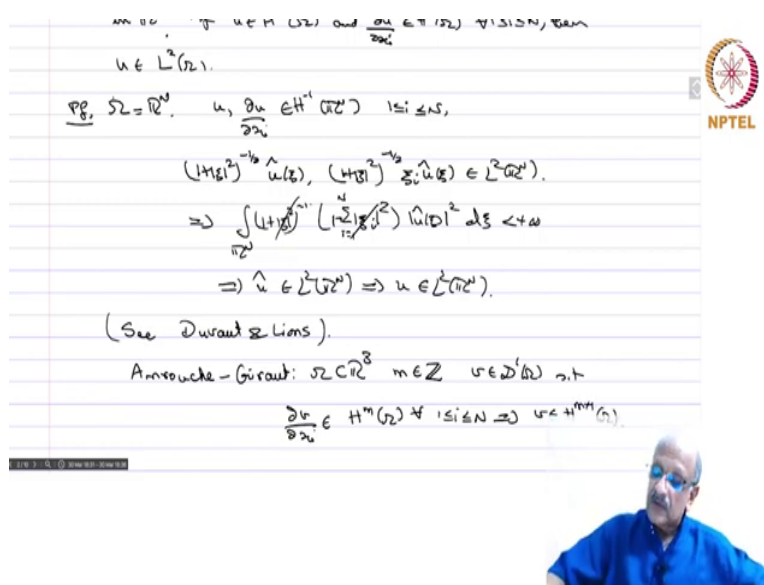 u ∈ H⁻¹(Ω) and ∂u/∂xᵢ ∈ H⁻¹(Ω) ∀ 1≤i≤N, then
u ∈ L²(Ω).
Pf. Ω = ℝᴺ. u, ∂u/∂xᵢ ∈ H⁻¹(ℝᴺ) 1≤i≤N,
(1+|ξ|²)^(-1/2) û(ξ), (1+|ξ|²)^(-1/2) ξᵢ û(ξ) ∈ L²(ℝᴺ).
⇒ ∫_ℝᴺ (1+|ξ|²)⁻¹ (1+Σᵢ₌₁ᴺ |ξᵢ|²) |û(ξ)|² dξ < +∞
⇒ û ∈ L²(ℝᴺ) ⇒ u ∈ L²(ℝᴺ).
(See Duvaut & Lions).
Amrouche - Girault: Ω ⊂ ℝ³ m ∈ ℤ v ∈ D'(Ω) s.t
∂v/∂xᵢ ∈ Hᵐ(Ω) ∀ 1≤i≤N ⇒ v ∈ Hᵐ⁺¹(Ω).
NPTEL